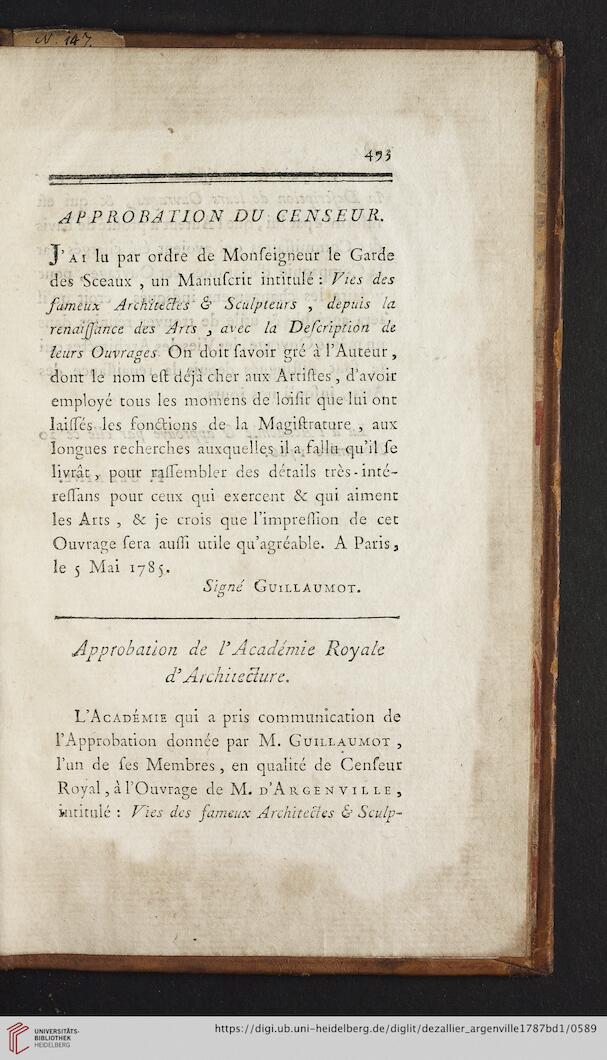 N. 147.
493
APPROBATION DU CENSEUR.
J'AI lu par ordre de Monſeigneur le Garde
des Sceaux , un Manuſcrit intitulé : Vies des
fameux Architectes & Sculpteurs , depuis la
renaiſſance des Arts , avec la Deſcription de
leurs Ouvrages On doit ſavoir gré à l'Auteur ,
dont le nom eſt déjà cher aux Artiſtes , d'avoir
employé tous les momens de loiſir que lui ont
laiſſés les fonctions de la Magiſtrature , aux
longues recherches auxquelles il a fallu qu'il ſe
livrât , pour raſſembler des détails très-inté-
reſſans pour ceux qui exercent & qui aiment
les Arts , & je crois que l'impreſſion de cet
Ouvrage ſera auſſi utile qu'agréable. A Paris,
le 5 Mai 1785.
Signé GUILLAUMOT.
Approbation de l'Académie Royale
d'Architecture.
L'ACADÉMIE qui a pris communication de
l'Approbation donnée par M. GUILLAUMOT ,
l'un de ſes Membres , en qualité de Cenſeur
Royal , à l'Ouvrage de M. D'ARGENVILLE ,
intitulé : Vies des fameux Architectes & Sculp-
UNIVERSITÄTS-
BIBLIOTHEK
HEIDELBERG
https://digi.ub.uni-heidelberg.de/diglit/dezallier_argenville1787bd1/0589